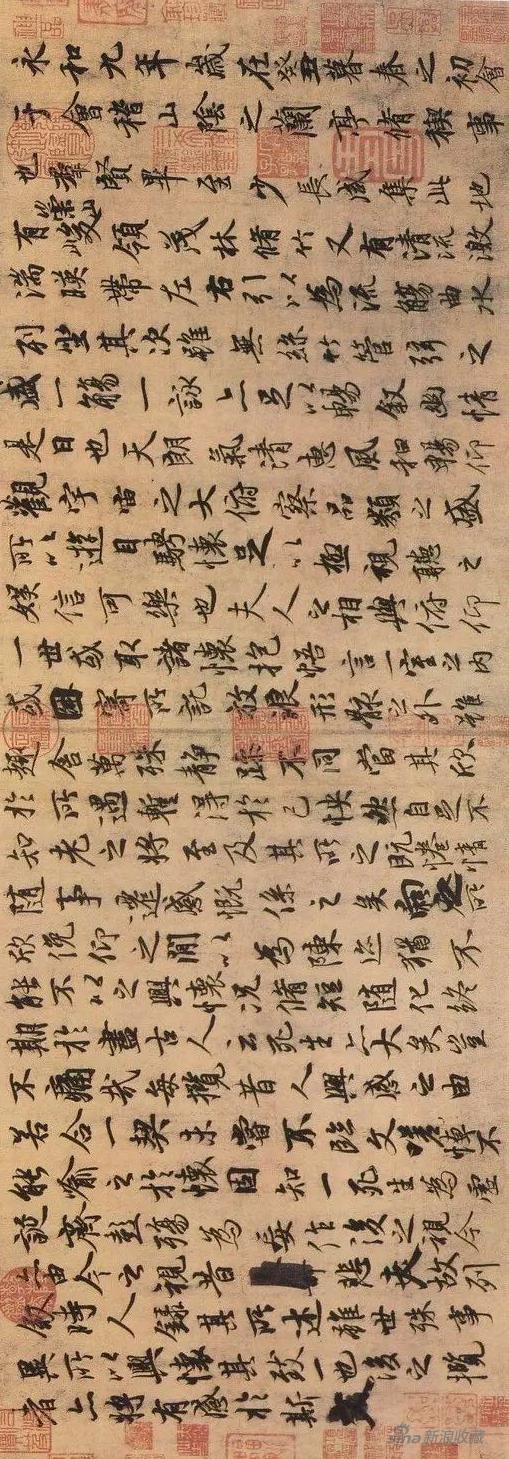 永和九年歲在癸丑暮春之初會
于會稽山陰之蘭亭脩稧事
也羣賢畢至少長咸集此地
有崇山峻領茂林脩竹又有清流激
湍暎帶左右引以為流觴曲水
列坐其次雖無絲竹管弦之
盛一觴一詠亦足以暢叙幽情
是日也天朗氣清惠風和暢仰
觀宇宙之大俯察品類之盛
所以遊目騁懷足以極視聽之
娛信可樂也夫人之相與俯仰
一世或取諸懷抱悟言一室之內
或因寄所託放浪形骸之外雖
趣舍萬殊靜躁不同當其欣
於所遇暫得於己怏然自足不
知老之將至及其所之既惓情
隨事遷感慨係之矣向之所
欣俛仰之閒以為陳迹猶不
能不以之興懷況脩短隨化終
期於盡古人云死生亦大矣豈
不痛哉每攬昔人興感之由
若合一契未嘗不臨文嗟悼不
能喻之於懷固知一死生為虛
誕齊彭殤為妄作後之視今
亦由今之視昔悲夫故列
叙時人錄其所述雖世殊事
異所以興懷其致一也後之攬
者亦將有感於斯文
sina新浪收藏